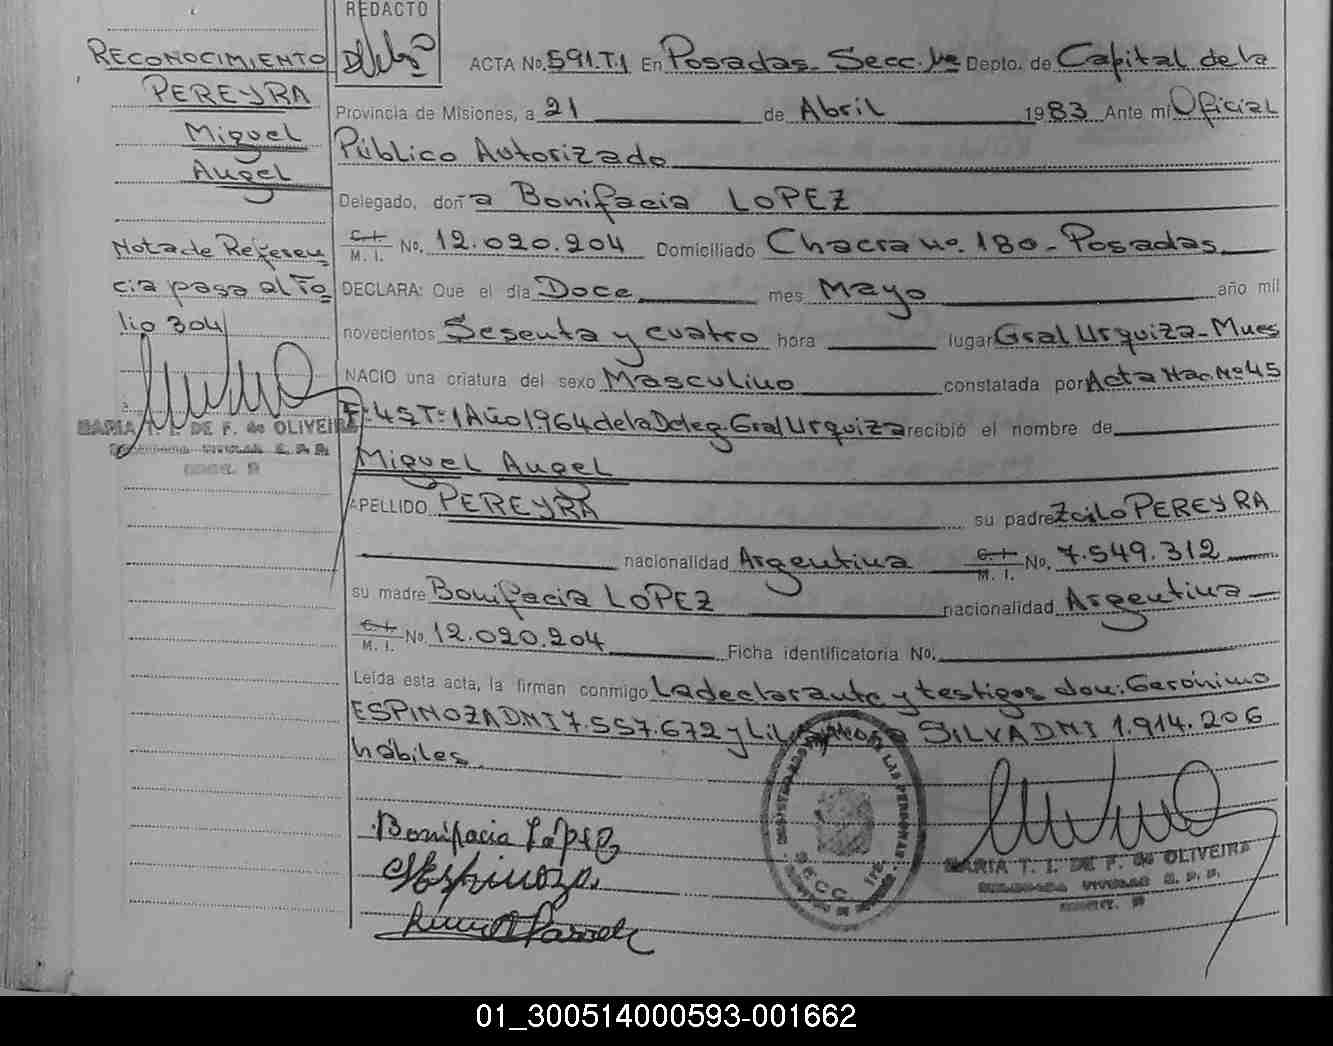 REDACTO
RECONOCIMIENTO
PEREYRA
Miguel
Angel
Nota de Referen
cia pasa al Fo
lio 304
MARIA T. I. DE F. de OLIVEIRA
ACTA No. 591.T.1 En Posadas Secc. 1ra Depto. de Capital de la
Provincia de Misiones, a 21 de Abril 1983 Ante mi Oficial
Público Autorizado
Delegado, doña Bonifacia LOPEZ
C. I. M. I. No. 12.020.204 Domiciliado Chacra no. 180 - Posadas
DECLARA: Que el día Doce mes Mayo año mil
novecientos Sesenta y cuatro hora lugar Gral Urquiza - Mnes
NACIO una criatura del sexo Masculino constatada por Acta Nac. Nº 45
Fº: 45 Tº: 1 Año 1.964 de la Deleg. Gral Urquiza recibió el nombre de
Miguel Angel
APELLIDO PEREYRA su padre Zoilo PEREYRA
nacionalidad Argentina C. I. M. I. No. 7.549.312
su madre Bonifacia LOPEZ nacionalidad Argentina
C. I. M. I. No. 12.020.204 Ficha identificatoria No.
Leída esta acta, la firman conmigo La declarante y testigos don: Gerónimo
ESPINOZA DNI 7.557.672 y SILVA DNI 1.914.206
hábiles
Bonifacia López
Espinoza
LAS PERSONAS
SECC. 1ra
MARIA T. I. DE F. de OLIVEIRA
01_300514000593-001662